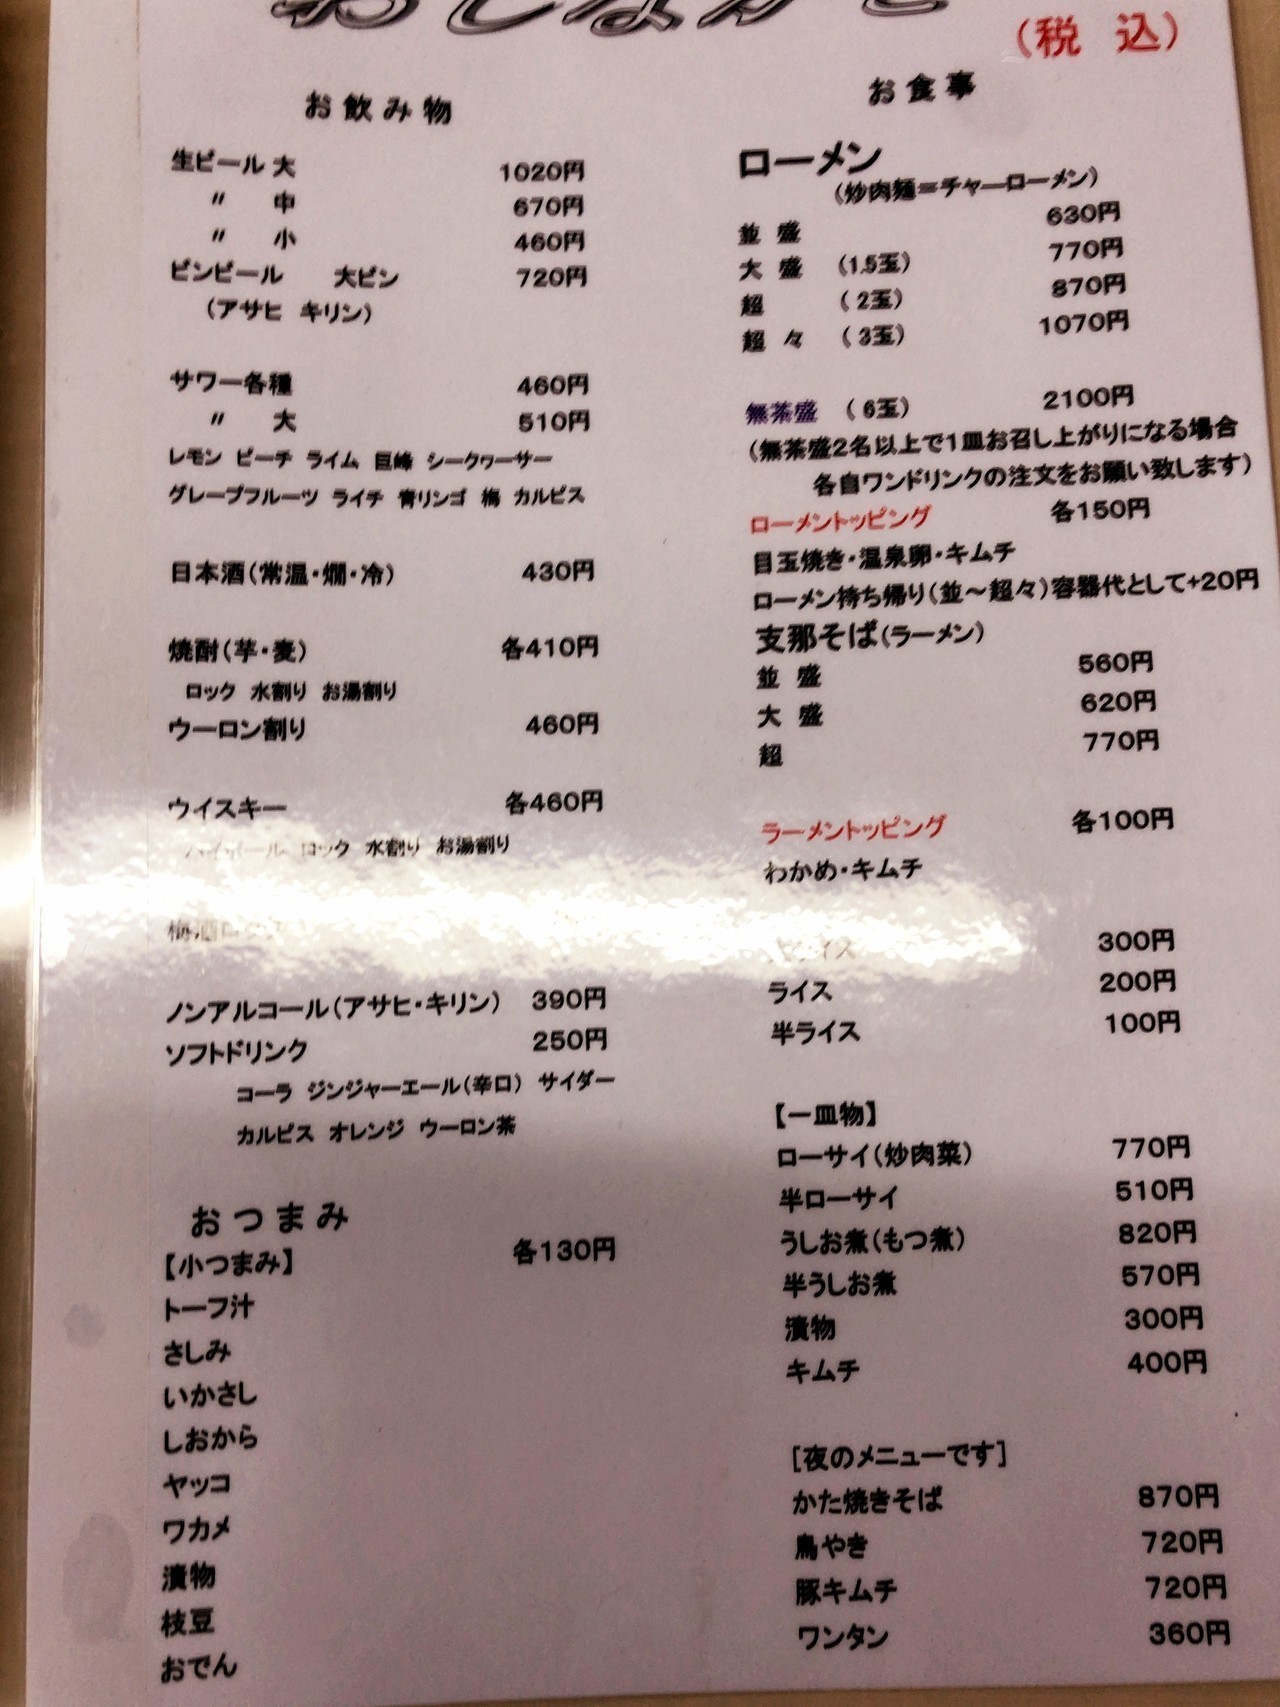 おしながき
(税 込)
お飲み物
生ビール 大 1020円
〃 中 670円
〃 小 460円
ビンビール 大ビン 720円
(アサヒ キリン)
サワー各種 460円
〃 大 510円
レモン ピーチ ライム 巨峰 シークヮーサー
グレープフルーツ ライチ 青リンゴ 梅 カルピス
日本酒(常温・燗・冷) 430円
焼酎(芋・麦) 各410円
ロック 水割り お湯割り
ウーロン割り 460円
ウイスキー 各460円
ハイボール ロック 水割り お湯割り
梅酒
ノンアルコール(アサヒ・キリン) 390円
ソフトドリンク 250円
コーラ ジンジャーエール(辛口) サイダー
カルピス オレンジ ウーロン茶
おつまみ
【小つまみ】 各130円
トーフ汁
さしみ
いかさし
しおから
ヤッコ
ワカメ
漬物
枝豆
おでん
お食事
ローメン
(炒肉麺=チャーローメン)
並 盛 630円
大 盛 (1.5玉) 770円
超 (2玉) 870円
超 々 (3玉) 1070円
無茶盛 (6玉) 2100円
(無茶盛2名以上で1皿お召し上がりになる場合
各自ワンドリンクの注文をお願い致します)
ローメントッピング 各150円
目玉焼き・温泉卵・キムチ
ローメン持ち帰り(並~超々)容器代として+20円
支那そば(ラーメン)
並 盛 560円
大 盛 620円
超 770円
ラーメントッピング 各100円
わかめ・キムチ
ライス 300円
ライス 200円
半ライス 100円
【一皿物】
ローサイ(炒肉菜) 770円
半ローサイ 510円
うしお煮(もつ煮) 820円
半うしお煮 570円
漬物 300円
キムチ 400円
[夜のメニューです]
かた焼きそば 870円
鳥やき 720円
豚キムチ 720円
ワンタン 360円